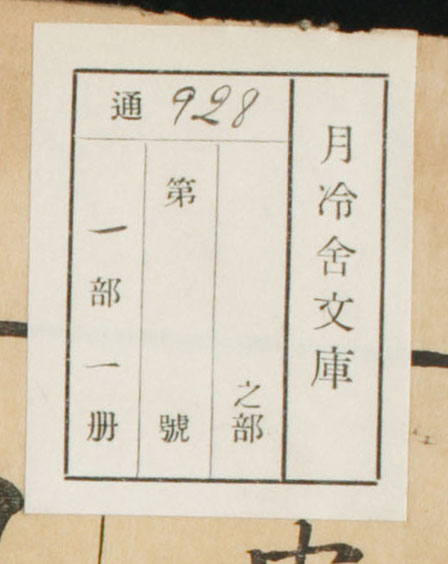 月冷舍文庫
通 928
之部
第 號
一部一册